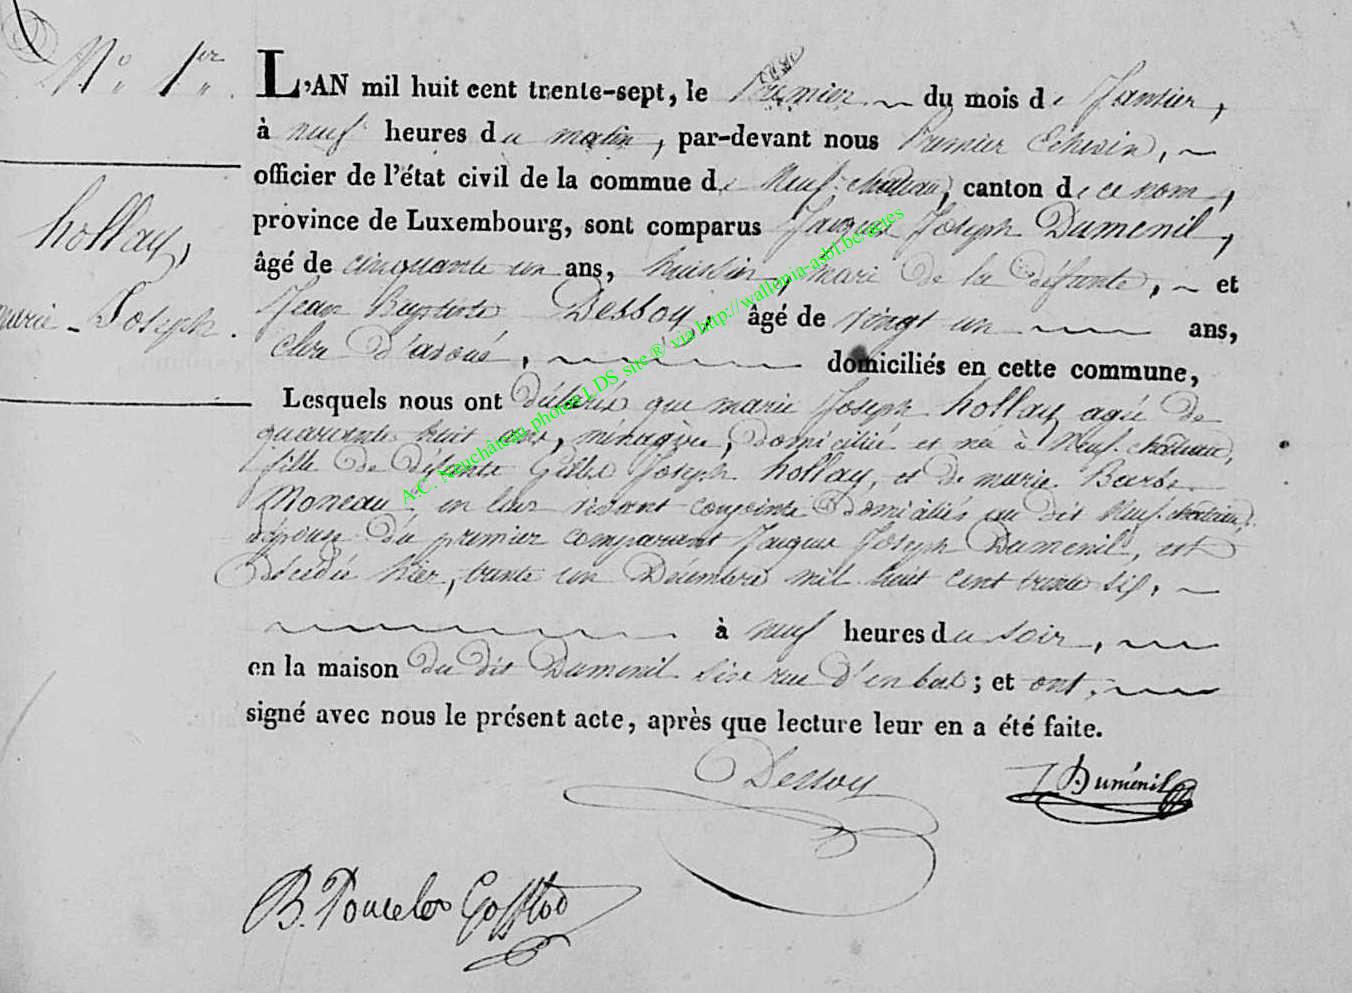 N° 1er.
L'AN mil huit cent trente-sept, le Premier du mois de Janvier,
à neuf heures du matin, par-devant nous Premier Echevin,
officier de l'état civil de la commue de Neuf-chateau, canton de ce nom,
province de Luxembourg, sont comparus Jacques Joseph Dumenil,
âgé de cinquante un ans, huissier, mari de la défunte, et
Jean Baptiste Dessoy, âgé de vingt un ans,
clerc d'avoué, domiciliés en cette commune,
hollay,
marie-Joseph.
Lesquels nous ont déclaré que marie Joseph hollay agée de
quarante huit ans, ménagère, domiciliée et née à Neuf-chateau,
fille de défunts Gille Joseph hollay, et de marie Barbe
Moneau, en leur vivant conjoints domiciliés au dit Neuf-chateau,
épouse du premier comparant Jacques Joseph Dumenil, est
décédée hier, trente un Décembre mil huit cent trente six,
à neuf heures du soir,
en la maison du dit Dumenil sise rue d'en bas; et ont,
signé avec nous le présent acte, après que lecture leur en a été faite.
Dessoy
J Duménil
B. Poncelet
A.C. Neuchâteau photos LDS site® via http://wallonia-asbl.be/actes